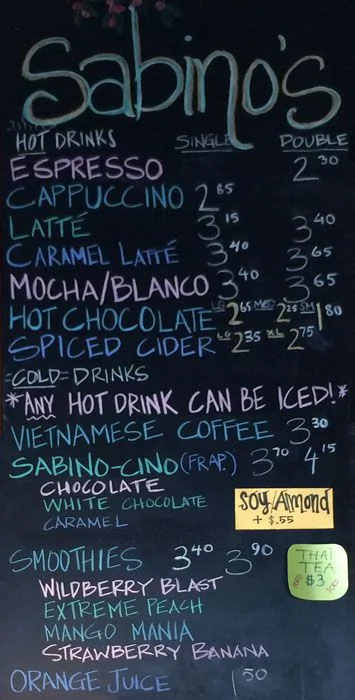 Sabino's
HOT DRINKS SINGLE DOUBLE
ESPRESSO 2 30
CAPPUCCINO 2 85
LATTÉ 3 15 3 40
CARAMEL LATTÉ 3 40 3 65
MOCHA/BLANCO 3 40 3 65
HOT CHOCOLATE LG 2 65 MED 2 25 SM 1 80
SPICED CIDER LG 2 35 XL 2 75
=COLD= DRINKS
*ANY HOT DRINK CAN BE ICED!*
VIETNAMESE COFFEE 3 30
SABINO-CINO (FRAP.) 3 70 4 15
CHOCOLATE
WHITE CHOCOLATE
CARAMEL
Soy/Almond
+ $.55
SMOOTHIES 3 40 3 90
THAI
TEA
ICED $3 ICED
WILDBERRY BLAST
EXTREME PEACH
MANGO MANIA
STRAWBERRY BANANA
ORANGE JUICE 1 50